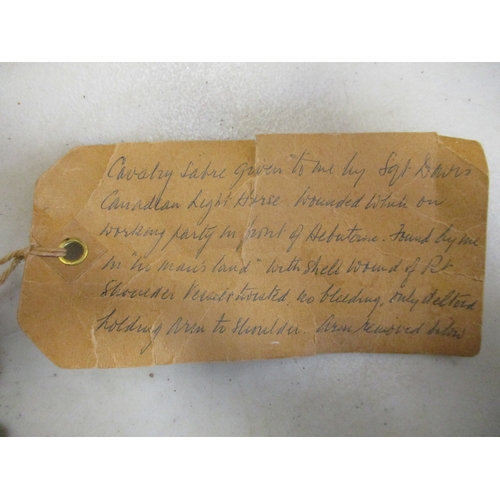 Cavalry Sabre given to me by Sgt Davis
Canadian Light Horse. Wounded while on
working party in front of Hebuterne. Found by me
in "no man's land" with shell wound of Rt
Shoulder Vessels twisted, no bleeding, only deltoid
holding arm to shoulder. Arm removed below